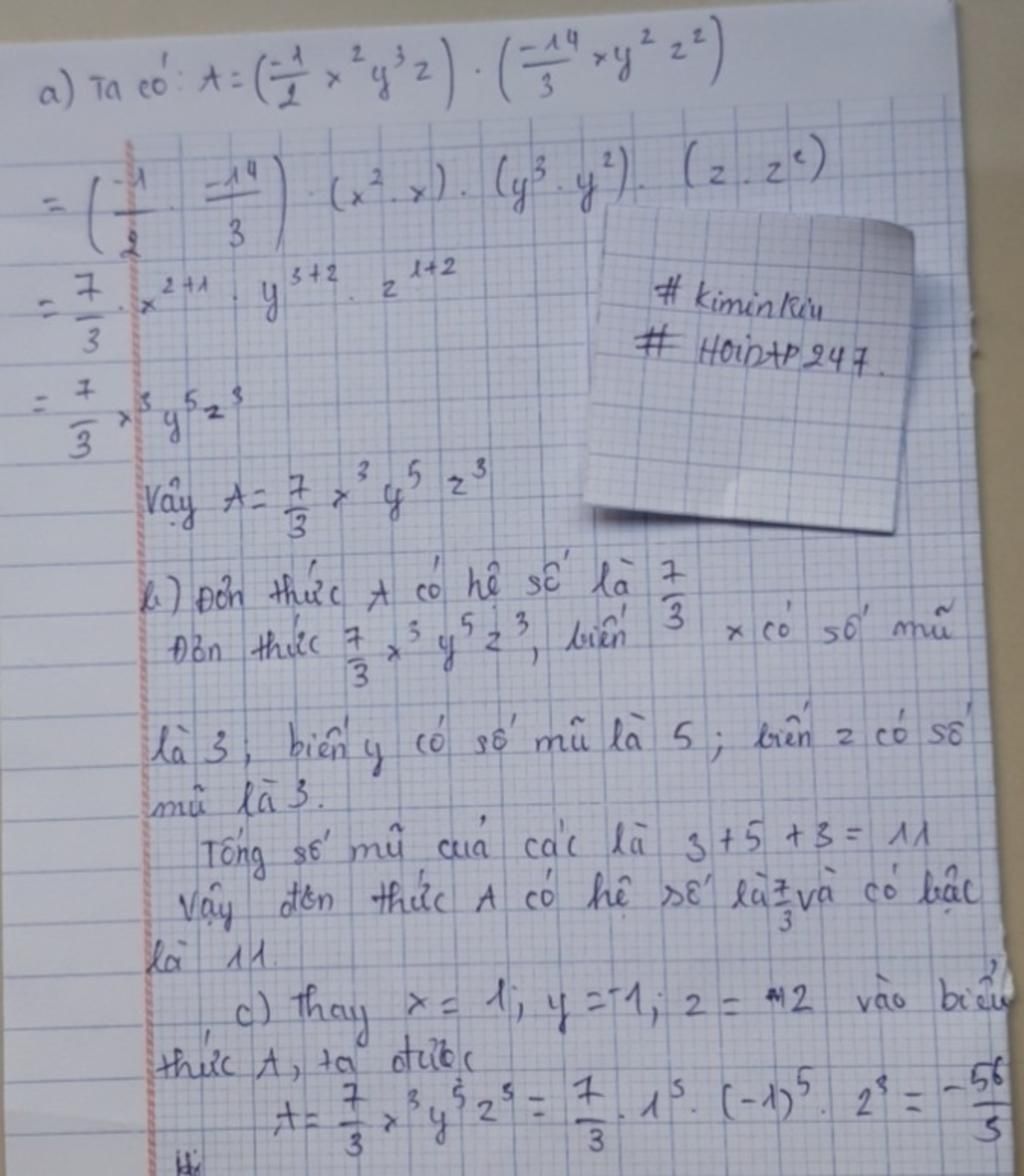 a) Ta có: A = (-1/2 x² y³ z) . (-14/3 x y² z²)
= (-1/2 . -14/3) . (x² . x) . (y³ . y²) . (z . z²)
= 7/3 . x²⁺¹ . y³⁺² . z¹⁺²
= 7/3 x³ y⁵ z³
# kiminkiu
# HOIDAP247.
Vậy A = 7/3 x³ y⁵ z³
b) Đơn thức A có hệ số là 7/3
Đơn thức 7/3 x³ y⁵ z³, biến x có số mũ
là 3, biến y có số mũ là 5; biến z có số
mũ là 3.
Tổng số mũ của các là 3 + 5 + 3 = 11
Vậy đơn thức A có hệ số là 7/3 và có bậc
là 11
c) Thay x = 1; y = -1; z = 2 vào biểu
thức A, ta được
A = 7/3 x³ y⁵ z³ = 7/3 . 1³ . (-1)⁵ . 2³ = -56/3